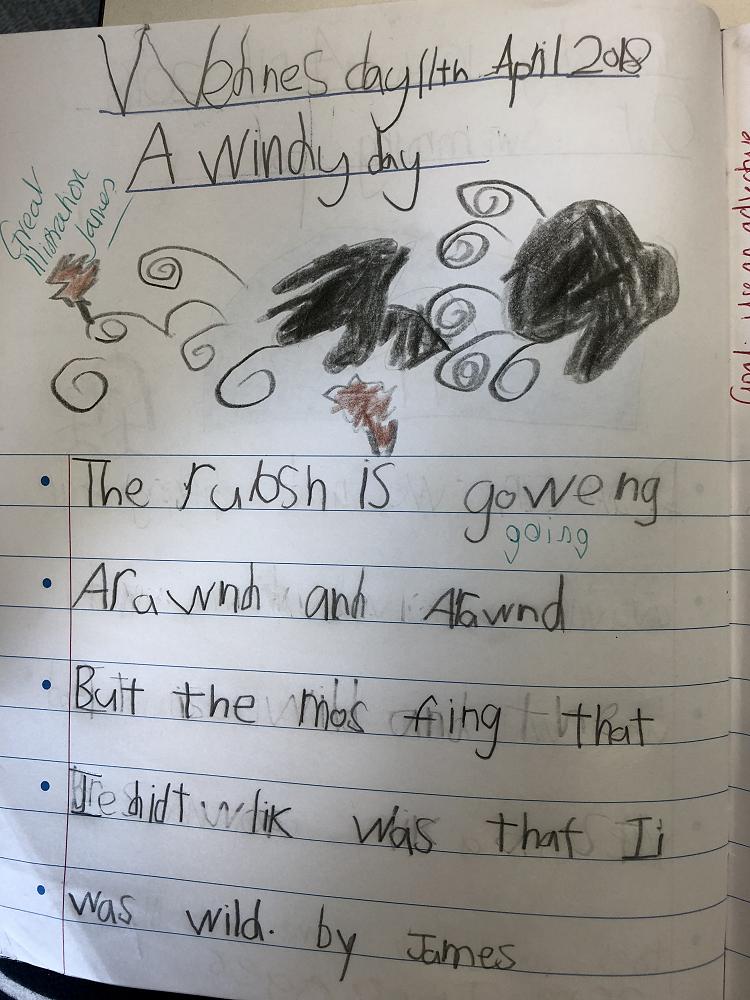 Wednesday 11th April 2018
A windy day
Great
illustration
James
The rubsh is goweng
going
Arawnd and Arawnd
But the mos fing that
I didt lik was that Ii
was wild. by James
Goal: use an adjective